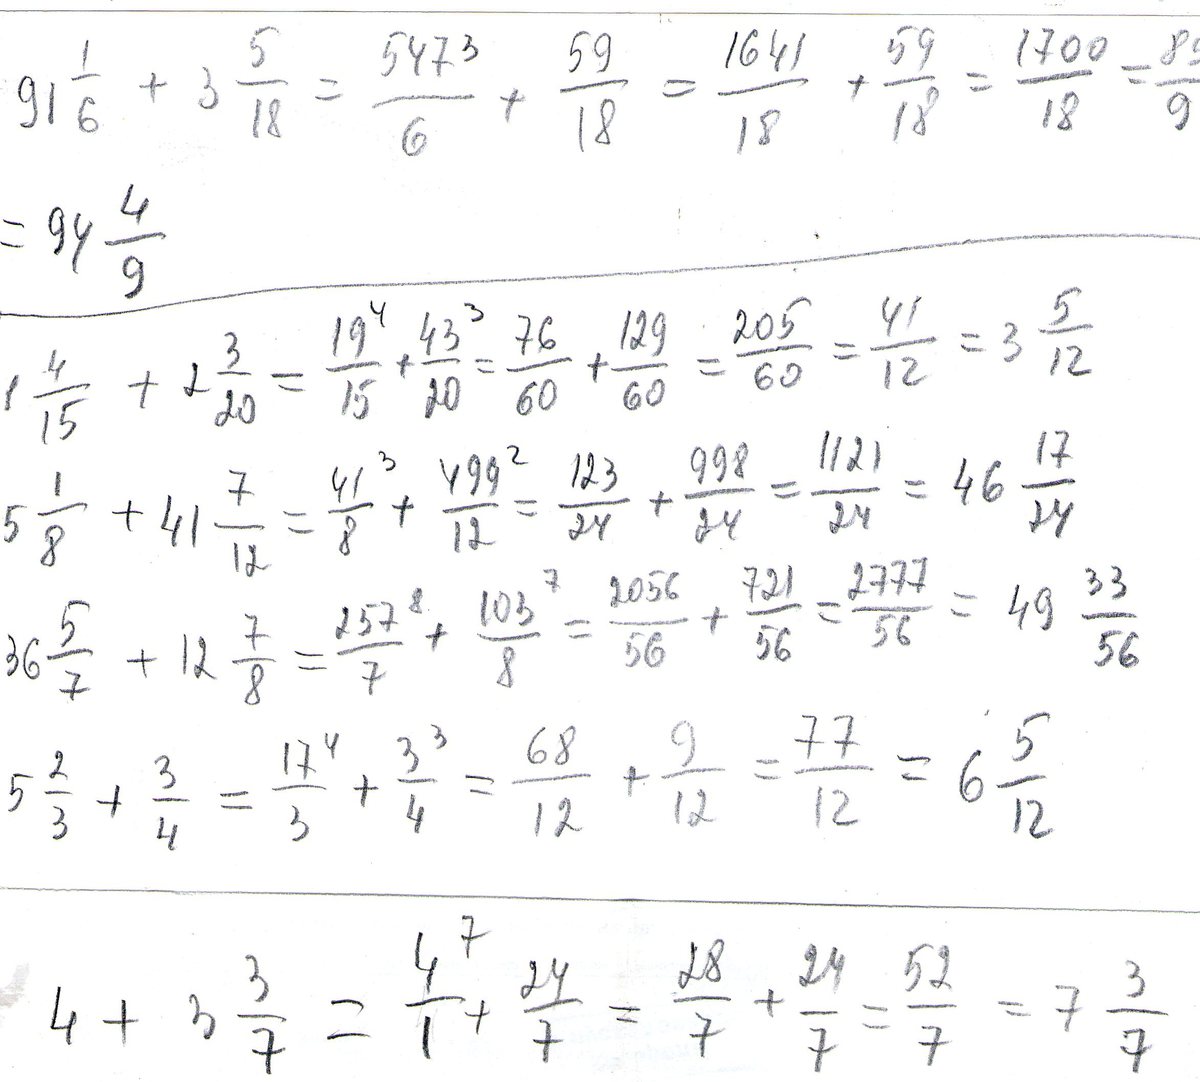 91 1/6 + 3 5/18 = 547³/6 + 59/18 = 1641/18 + 59/18 = 1700/18 = 85/9
= 94 4/9
1 4/15 + 2 3/20 = 19⁴/15 + 43³/20 = 76/60 + 129/60 = 205/60 = 41/12 = 3 5/12
5 1/8 + 41 7/12 = 41³/8 + 499²/12 = 123/24 + 998/24 = 1121/24 = 46 17/24
36 5/7 + 12 7/8 = 257⁸/7 + 103⁷/8 = 2056/56 + 721/56 = 2777/56 = 49 33/56
5 2/3 + 3/4 = 17⁴/3 + 3³/4 = 68/12 + 9/12 = 77/12 = 6 5/12
4 + 3 3/7 = 4⁷/1 + 24/7 = 28/7 + 24/7 = 52/7 = 7 3/7